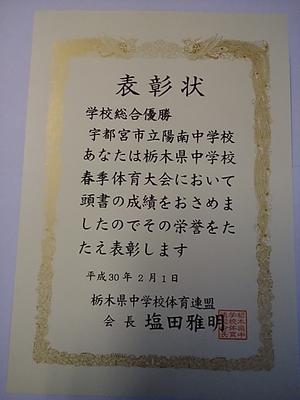 表彰状
学校総合優勝
宇都宮市立陽南中学校
あなたは栃木県中学校
春季体育大会において
頭書の成績をおさめま
したのでその栄誉をた
たえ表彰します
平成30年2月1日
栃木県中学校体育連盟
会長 塩田雅明